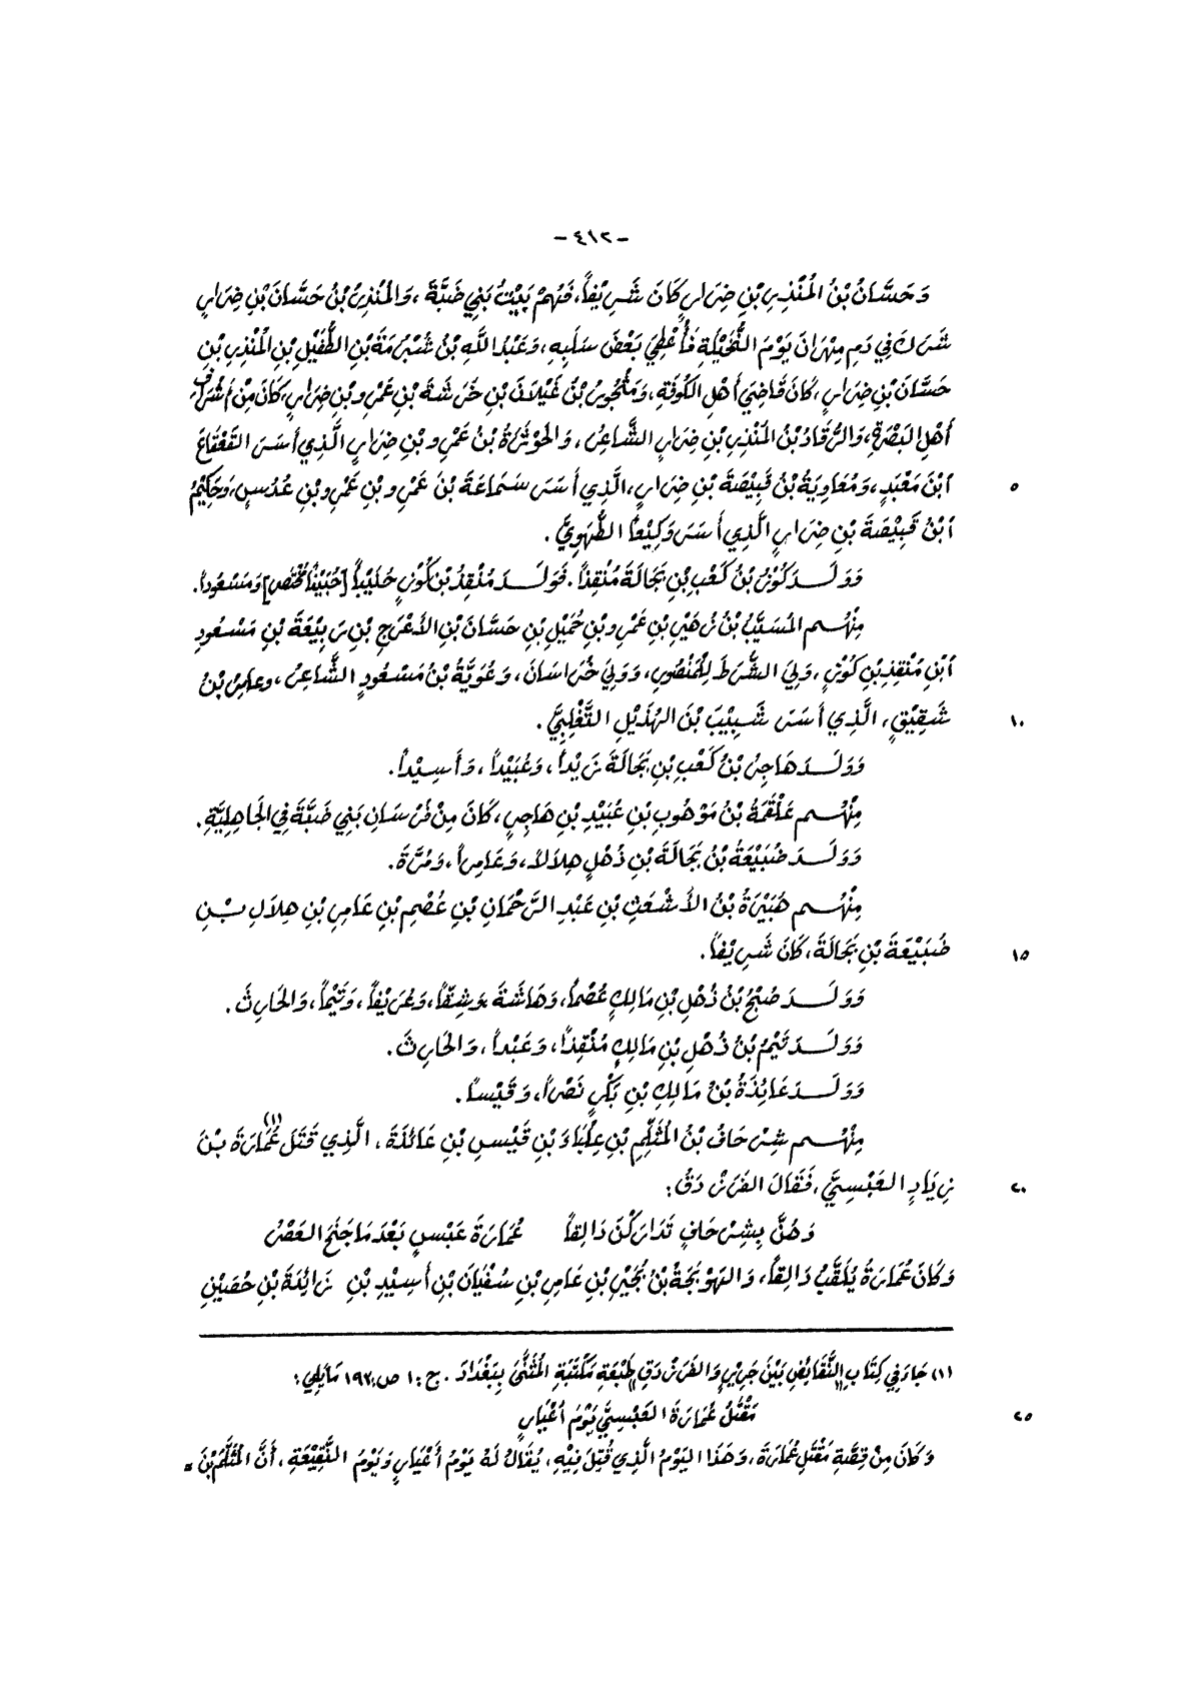 -٤١٢-
وَحَسَّانُ بْنُ المُنْذِرِ بْنِ ضِرَارٍ كَانَ شَرِيْفاً، فَهُمْ بَيْتُ بَنِي ضَبَّةَ، وَالمُنْذِرُ بْنُ حَسَّانَ بْنِ ضِرَارٍ
شَرَكَ فِي دَمِ مِهْرَانَ يَوْمَ النُّخَيْلَةِ فَأُعْطِيَ بَعْضَ سَلَبِهِ، وَعَبْدُ اللَّهِ بْنُ شُبْرُمَةَ بْنِ الطُّفَيْلِ بْنِ المُنْذِرِ بْنِ
حَسَّانَ بْنِ ضِرَارٍ، كَانَ قَاضِيَ أَهْلِ الكُوفَةِ، وَمَنْجُورُ بْنُ غَيْلَانَ بْنِ خَرَشَةَ بْنِ عَمْرِو بْنِ ضِرَارٍ، كَانَ مِنْ أَشْرَافِ
أَهْلِ البَصْرَةِ، وَالرُّقَادُ بْنُ المُنْذِرِ بْنِ ضِرَارٍ الشَّاعِرُ، وَالحَوْثَرَةُ بْنُ عَمْرِو بْنِ ضِرَارٍ الَّذِي أَسَرَ القَعْقَاعَ
٥ ابْنَ مَعْبَدٍ، وَمُعَاوِيَةُ بْنُ قَبِيْصَةَ بْنِ ضِرَارٍ، الَّذِي أَسَرَ سَمَاعَةَ بْنَ عَمْرِو بْنِ عَمْرِو بْنِ عُدُسٍ، وَحَكِيْمُ
ابْنُ قَبِيْصَةَ بْنِ ضِرَارٍ الَّذِي أَسَرَ وَكِيْعاً الطُّهَوِيَّ.
وَوَلَدَ كُوْزُ بْنُ كَعْبِ بْنِ بَجَالَةَ مُنْقِذاً. فَوَلَدَ مُنْقِذُ بْنُ كُوْزٍ حُلَيْباً [حُبَيْباً مُخْتَصَرٌ] وَمَسْعُوداً.
مِنْهُم المُسَيَّبُ بْنُ زُهَيْرِ بْنِ عَمْرِو بْنِ حُمَيْلِ بْنِ حَسَّانَ بْنِ الأَعْرَجِ بْنِ رَبِيْعَةَ بْنِ مَسْعُودِ
ابْنِ مُنْقِذِ بْنِ كُوْزٍ، وَلِيَ الشُّرَطَ لِلْمَنْصُورِ، وَوَلِيَ خُرَاسَانَ، وَغُوَيَّةُ بْنُ مَسْعُودٍ الشَّاعِرُ، وعَامِرُ بْنُ
١٠ شَقِيْقٍ، الَّذِي أَسَرَ شَبِيْبَ بْنَ الهُذَيْلِ التَّغْلِبِيَّ.
وَوَلَدَ هَاجِرُ بْنُ كَعْبِ بْنِ بَجَالَةَ زَيْداً، وَعُبَيْداً، وَأَسِيْداً.
مِنْهُم عَلْقَمَةُ بْنُ مَوْهُوبِ بْنِ عُبَيْدِ بْنِ هَاجِرٍ، كَانَ مِنْ فُرْسَانِ بَنِي ضَبَّةَ فِي الجَاهِلِيَّةِ.
وَوَلَدَ ضُبَيْعَةُ بْنُ بَجَالَةَ بْنِ ذُهْلٍ هِلَالاً، وَعَامِراً، وَمُرَّةَ.
مِنْهُم هُبَيْرَةُ بْنُ الأَشْعَثِ بْنِ عَبْدِ الرَّحْمَانِ بْنِ عُصْمِ بْنِ عَامِرِ بْنِ هِلَالِ بْنِ
١٥ ضُبَيْعَةَ بْنِ بَجَالَةَ، كَانَ شَرِيْفاً.
وَوَلَدَ صُبْحُ بْنُ ذُهْلِ بْنِ مَالِكٍ عُصْماً، وَهَاشَةَ وَشِقّاً، وَعُرَيْفاً، وَتَيْماً، وَالحَارِثَ.
وَوَلَدَ تَيْمُ بْنُ ذُهْلِ بْنِ مَالِكٍ مُنْقِذاً، وَعَبْداً، وَالحَارِثَ.
وَوَلَدَ عَائِذَةُ بْنُ مَالِكِ بْنِ بَكْرٍ نَصْراً، وَقَيْساً.
مِنْهُم شِرْحَافُ بْنُ المُثَلَّمِ بْنِ عِلْبَاءَ بْنِ قَيْسِ بْنِ عَائِذَةَ، الَّذِي قَتَلَ عُمَارَةَ (١) بْنَ
٢٠ زِيَادٍ العَبْسِيَّ، فَقَالَ الفَرَزْدَقُ:
وَهُنَّ بِشِرْحَافٍ تَدَارَكْنَ دَالِقاً عُمَارَةَ عَبْسٍ بَعْدَ مَا جَنَحَ العَصْرُ
وَكَانَ عُمَارَةُ يُلَقَّبُ دَالِقاً، وَالهَوْبَجَةُ بْنُ بُجَيْرِ بْنِ عَامِرِ بْنِ سُفْيَانَ بْنِ أُسَيْدِ بْنِ زَائِدَةَ بْنِ حُصَيْنِ
(١) جَاءَ فِي كِتَابِ "النَّقَائِضِ بَيْنَ جَرِيْرٍ وَالفَرَزْدَقِ" طَبْعَةِ مَكْتَبَةِ المُثَنَّى بِبَغْدَادَ. ج: ١ ص: ١٩٣ مَايَلِي:
٢٥ مَقْتَلُ عُمَارَةَ العَبْسِيَّ يَوْمَ أَعْيَارٍ
وَكَانَ مِنْ قِصَّةِ مَقْتَلِ عُمَارَةَ، وَهَذَا اليَوْمُ الَّذِي قُتِلَ فِيْهِ، يُقَالُ لَهُ يَوْمُ أَعْيَارٍ وَيَوْمُ النَّقِيْعَةِ، أَنَّ المُثَلَّمَ بْنَ =